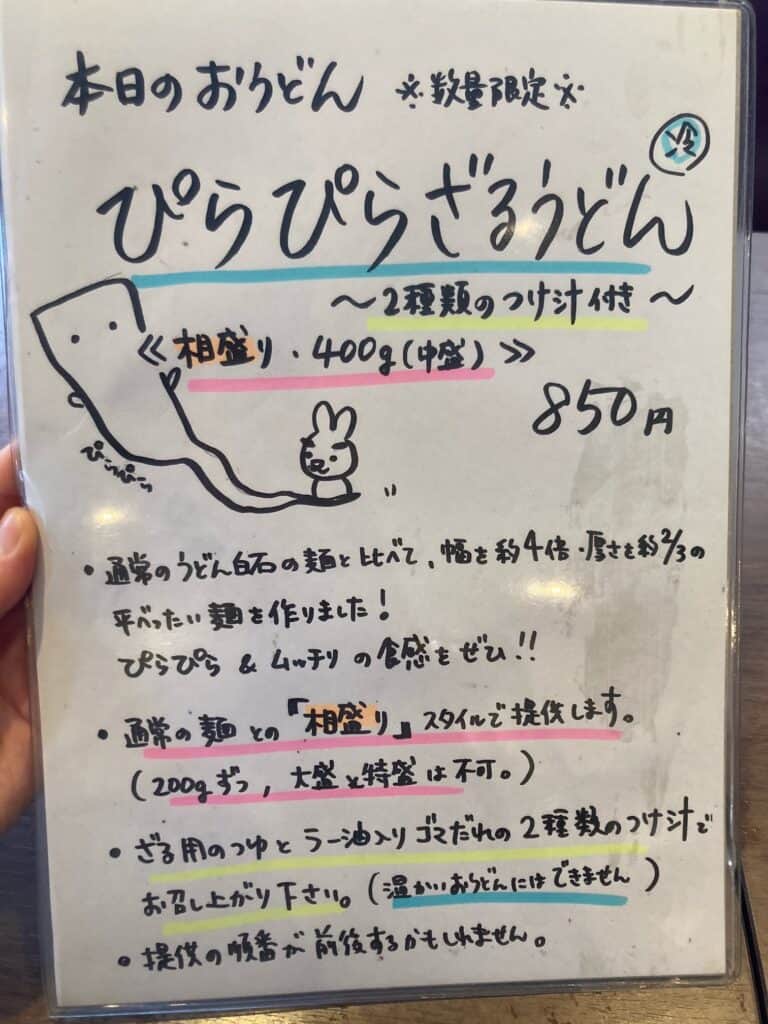 本日のおうどん ※数量限定※
冷
ぴらぴらざるうどん
〜2種類のつけ汁付き〜
≪相盛り・400g(中盛)≫
850円
ぴらぴら
・通常のうどん白石の麺と比べて、幅を約4倍・厚さを約2/3の
平べったい麺を作りました!
ぴらぴら & ムッチリ の食感をぜひ!!
・通常の麺との「相盛り」スタイルで提供します。
(200gずつ, 大盛と特盛は不可。)
・ざる用のつゆとラー油入りゴマだれの2種数のつけ汁で
お召し上がり下さい。(温かいおうどんにはできません)
・提供の順番が前後するかもしれません。